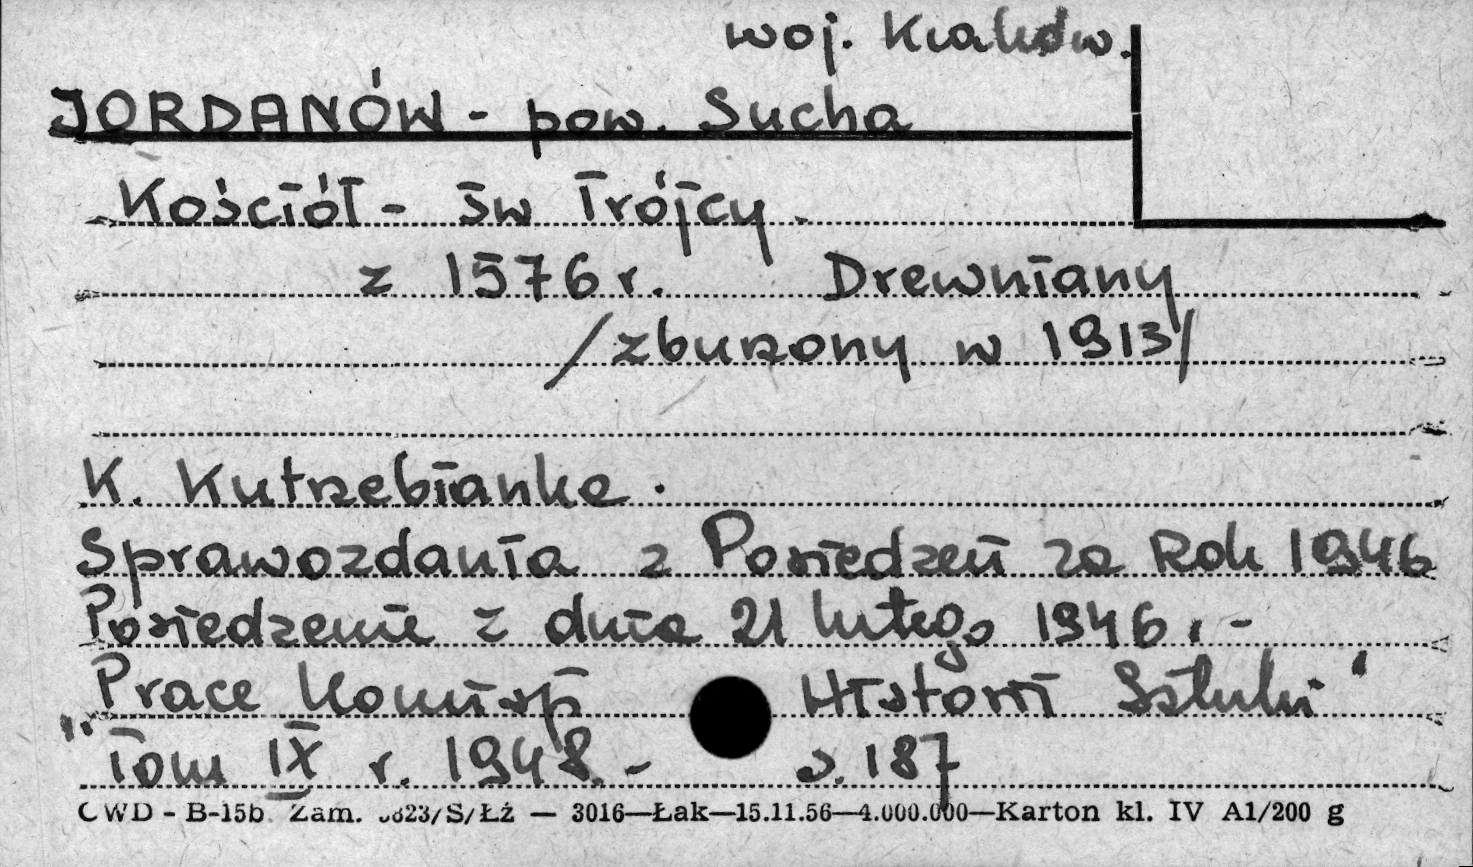 woj. Kraków.
JORDANÓW - pow. Sucha
Kościół - św Trójcy
z 1576 r. Drewniany
/zburzony w 1913/
K. Kutrzebianka.
Sprawozdania z Posiedzeń za Rok 1946
Posiedzenie z dnia 21 lutego 1946 r. -
"Prace Komisji Historii Sztuki"
Tom IX r. 1948. - s. 187
CWD - B-15b Zam. 3823/S/ŁŻ — 3016—Łak—15.11.56—4.000.000—Karton kl. IV A1/200 g